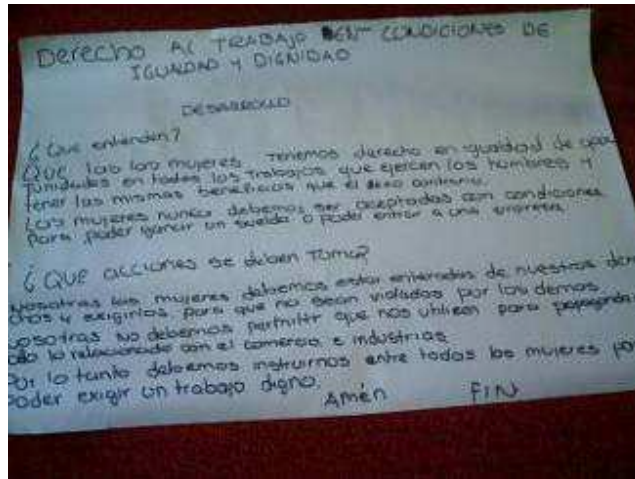 Derecho AL TRABAJO EN CONDICIONES DE
IGUALDAD Y DIGNIDAD
DESARROLLO
¿Que entienden?
QUE las las mujeres tenemos derecho en igualdad de opor
tunidades en todos los trabajos que ejercen los hombres y
tener los mismos beneficios que el sexo contrario.
Las mujeres nunca debemos ser aceptadas con condiciones
Para poder ganar un sueldo o poder entrar a una empresa
¿QUE acciones se deben Tomar?
Nosotras las mujeres debemos estar enteradas de nuestros dere
chos y exigirlos para que no sean violados por los demas
Nosotras No debemos permitir que nos utilicen para propaganda
todo lo relacionado con el comercio e industrias
Por lo tanto debemos instruirnos entre todas las mujeres para
poder exigir un trabajo digno.
Amén FIN